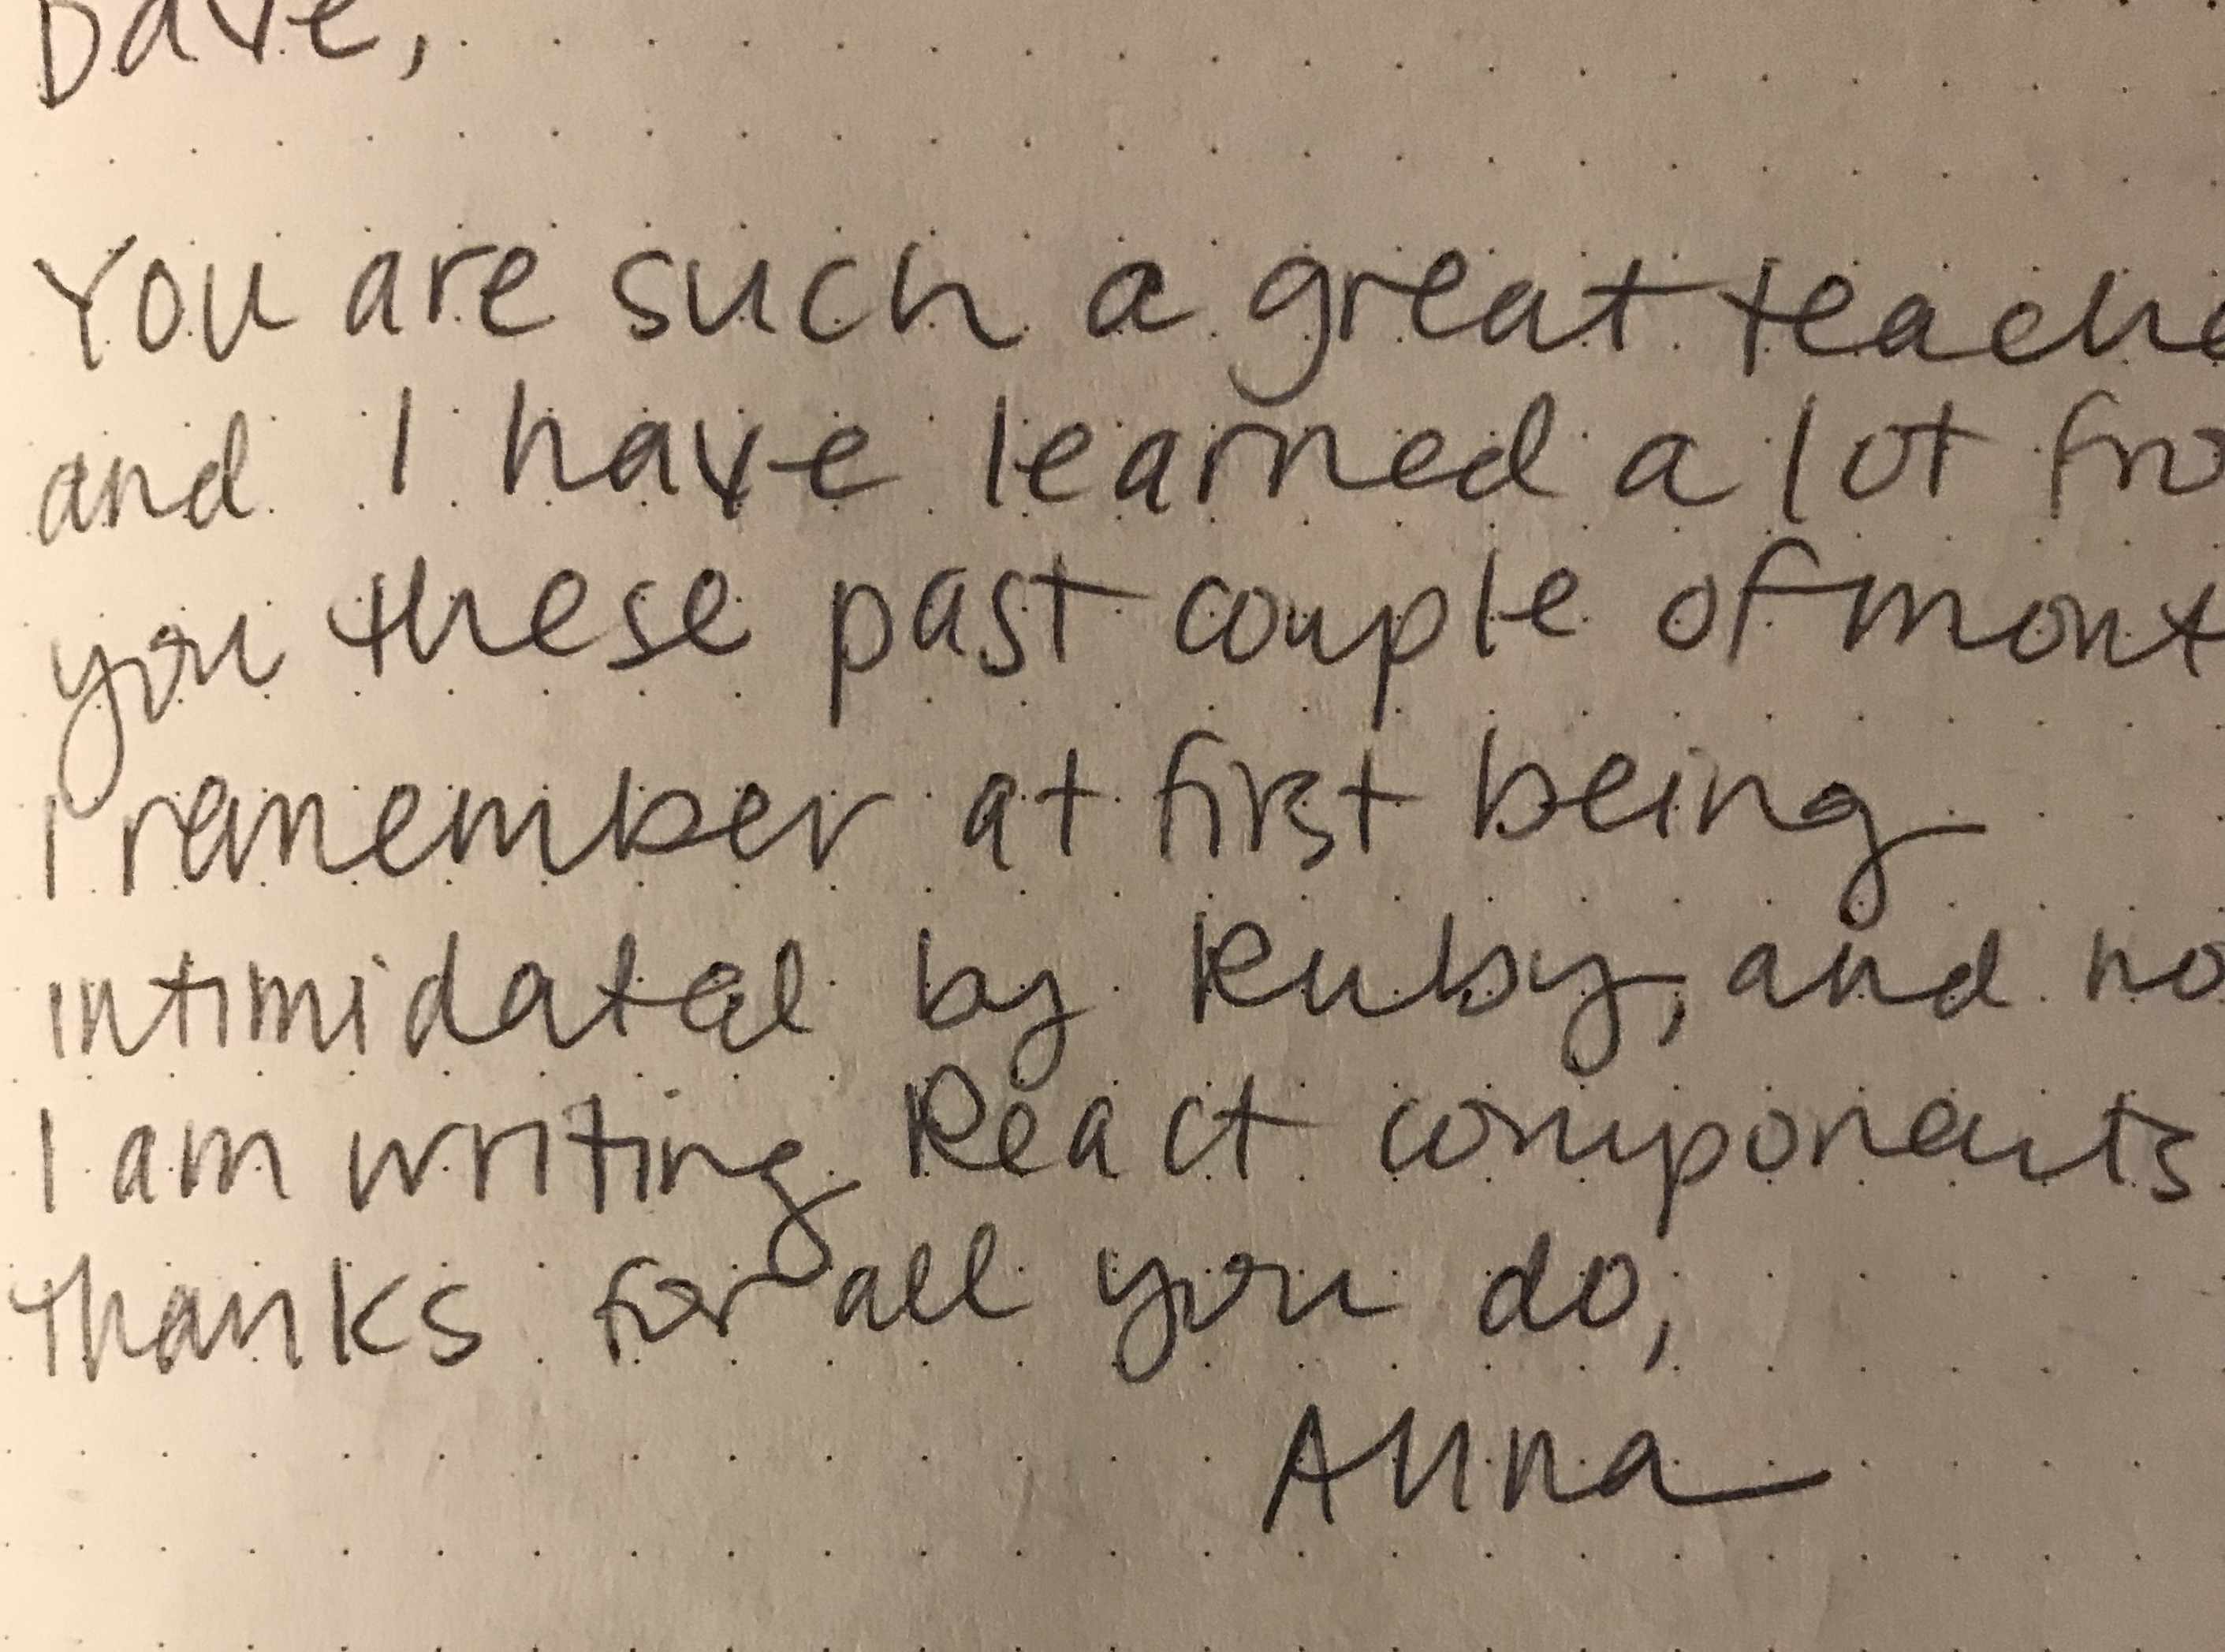 Dave,
You are such a great teache
and I have learned a lot fro
you these past couple of mont
I remember at first being
intimidated by Ruby, and no
I am writing React components
thanks for all you do,
Anna